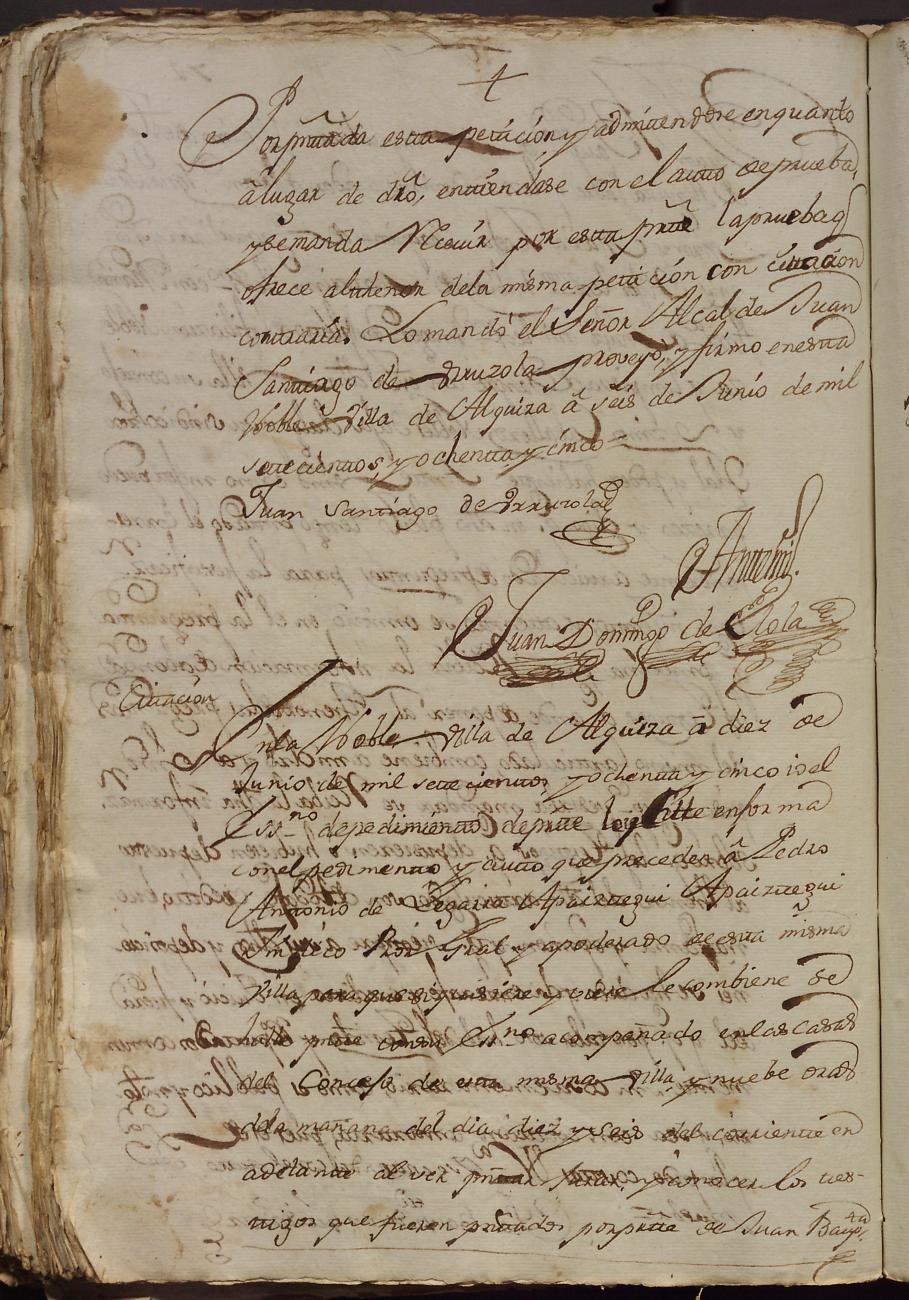 Por pñtada esta petición y admitendose en quanto
à lugar de dró, entiendase con el auto de prueba,
y se manda Recivir por esta prûe la prueba q̃
ofrece al thenor de la misma petición con citación
contraria. Lo mandò el Señor Alcalde Juan
Santiago de Irruzola proveyò, y firmo en esta
Noble Villa de Alquiza à seis de Junio de mil
setecientos, y ochenta y cinco =
Juan Santiago de Irruzola
Antemi.
Juan Domingo de Elola
Citación
En la Noble Villa de Alquiza à diez de
Junio de mil setecientos y ochenta y cinco io el
Ess.no de pedimiento de prûe ley Cite en forma
con el pedimento y auto que precede à Pedro
Antonio de Legarra Apaiztegui Apaiztegui
Sindico Pror Gral y apoderado de esta misma
Villa para que si quisiere y viere le combiene se
halle prûe con su Ess.no acompañado en las casas
del Concejo de esta misma Villa y nuebe oras
de la mañana del dia diez y seis del corriente en
adelante al ver pñtar jurar, y conocer los tes-
tigos que fueren pñtados por prûe de Juan Baup.ta